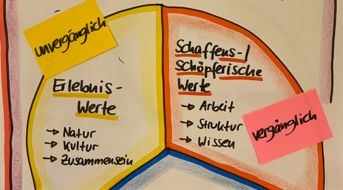 unvergänglich
Erlebnis-
Werte
→ Natur
→ Kultur
→ Zusammensein
Schaffens-/
Schöpferische
Werte
→ Arbeit
→ Struktur
→ Wissen
vergänglich